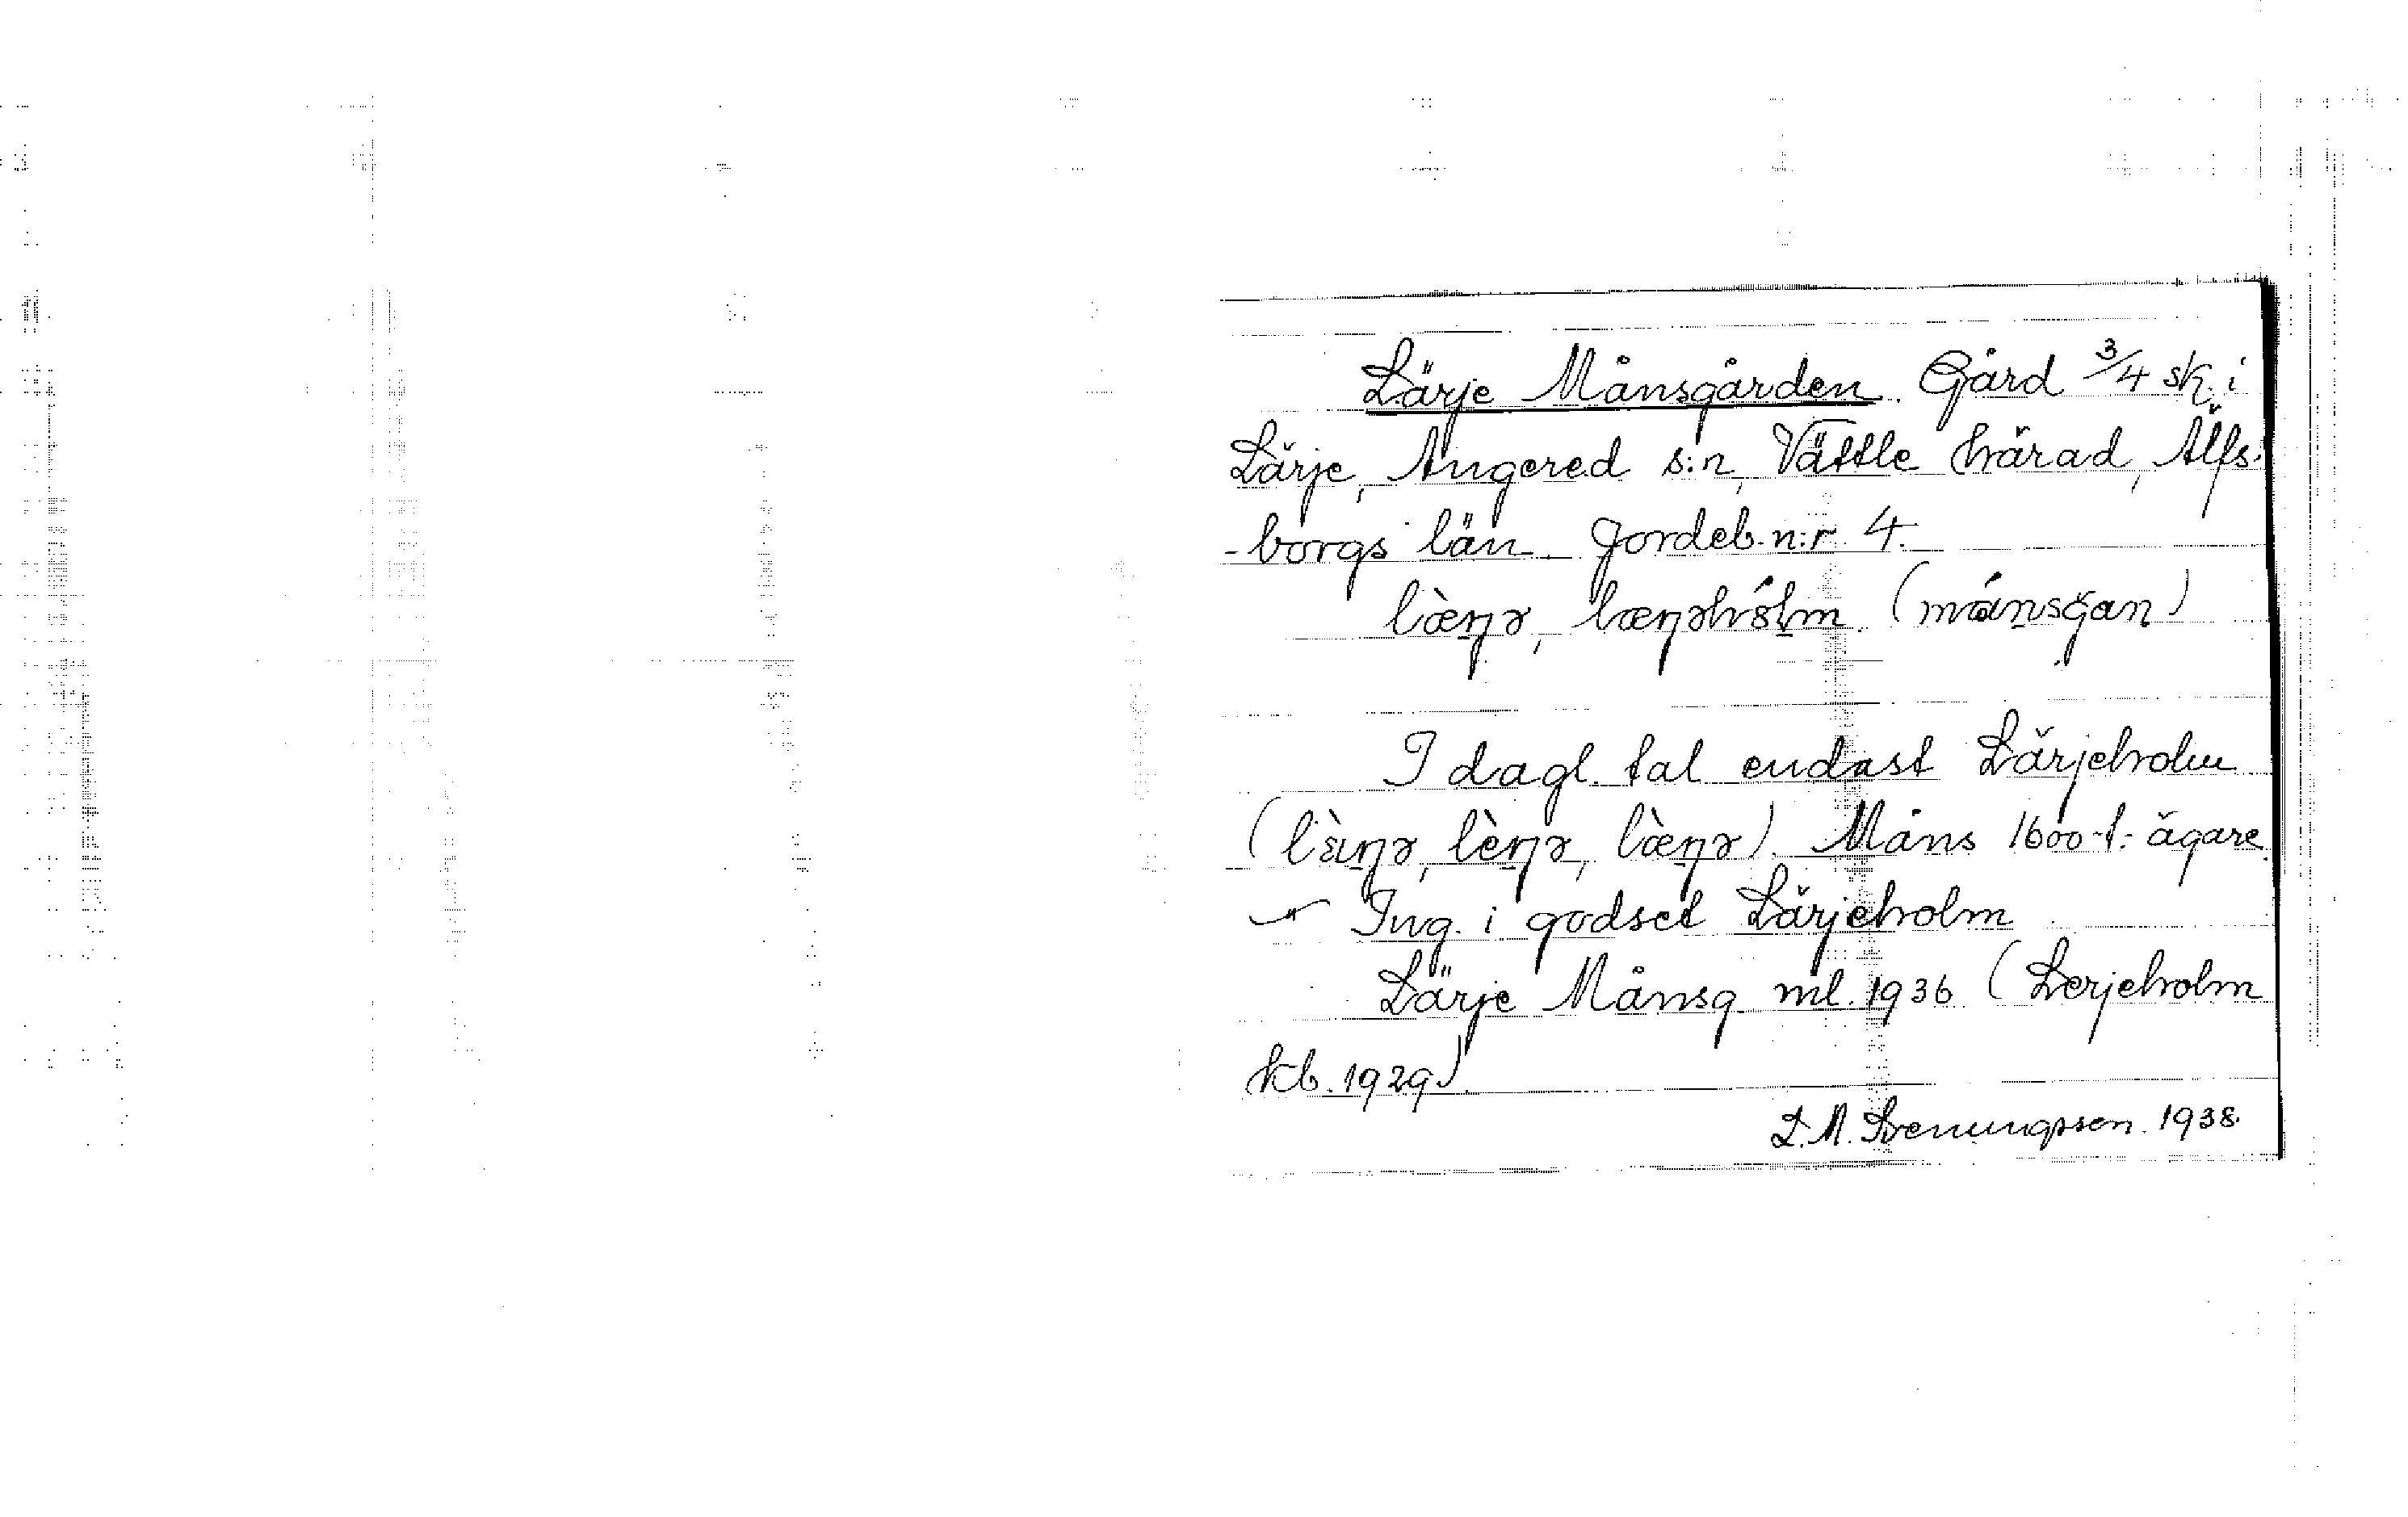 Lärje Månsgården. Gård 3/4 sk. i
Lärje, Angered s:n, Vättle härad, Älfs-
-borgs län. Jordeb. n:r 4.
(månsgan)
I dagl. tal endast Lärjeholm
Måns 1600-t. ägare.
Ing. i godset Lärjeholm
Lärje Månsg. ml. 1936 (Lerjeholm
kb. 1929).
Svenungsson. 1938.